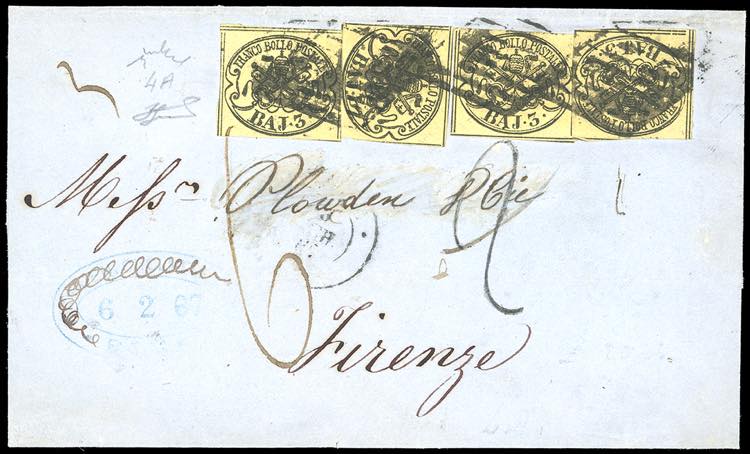 FRANCO BOLLO POSTALE
BAJ. 3.
FRANCO BOLLO POSTALE
BAJ. 3.
FRANCO BOLLO POSTALE
BAJ. 3.
FRANCO BOLLO POSTALE
BAJ. 3.
4A
Messrs Plowden & Cie
6 2 67
6
2
Firenze